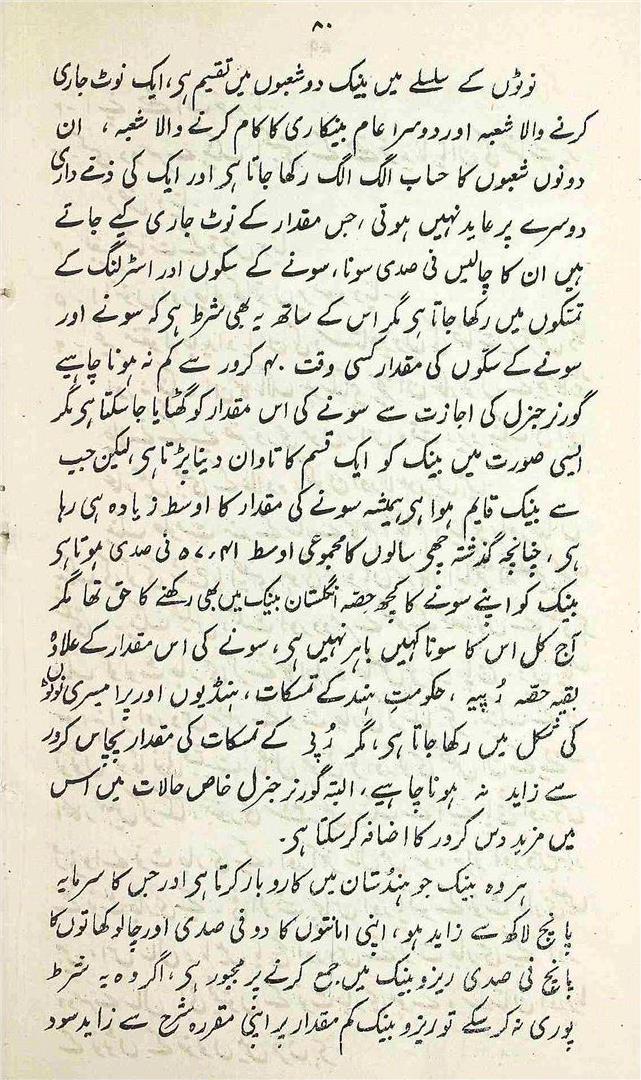 ۸۰
نوٹوں کے سلسلے میں بینک دو شعبوں میں تقسیم ہی، ایک نوٹ جاری
کرنے والا شعبہ اور دوسرا عام بینکاری کا کام کرنے والا شعبہ، ان
دونوں شعبوں کا حساب الگ الگ رکھا جاتا ہی اور ایک کی ذمے داری
دوسرے پر عاید نہیں ہوتی، جس مقدار کے نوٹ جاری کیے جاتے
ہیں ان کا چالیس فی صدی سونا، سونے کے سکوں اور اسٹرلنگ کے
تمسکوں میں رکھا جاتا ہی مگر اس کے ساتھ یہ بھی شرط ہی کہ سونے اور
سونے کے سکّوں کی مقدار کسی وقت ۴۰ کرور سے کم نہ ہونا چاہیے
گورنر جنرل کی اجازت سے سونے کی اس مقدار کو گھٹایا جا سکتا ہی مگر
ایسی صورت میں بینک کو ایک قسم کا تاوان دینا پڑتا ہی، لیکن جب
سے بینک قایم ہوا ہی ہمیشہ سونے کی مقدار کا اوسط زیادہ ہی رہا
ہی، چنانچہ گذشتہ چھی سالوں کا مجموعی اوسط ۵۷٫۴۱ فی صدی ہوتا ہی
بینک کو اپنے سونے کا کچھ حصّہ انگلستان بینک میں بھی رکھنے کا حق تھا مگر
آج کل اس کا سونا کہیں باہر نہیں ہی، سونے کی اس مقدار کے علاوہ
بقیہ حصّہ رُپیہ، حکومتِ ہند کے تمسکات، ہنڈیوں اور پرامیسری نوٹوں
کی شکل میں رکھا جاتا ہی، مگر رُپی کے تمسکات کی مقدار پچاس کرور
سے زاید نہ ہونا چاہیے، البتہ گورنر جنرل خاص حالات میں اس
میں مزید دس کرور کا اضافہ کر سکتا ہی۔
ہر وہ بینک جو ہندُستان میں کاروبار کرتا ہی اور جس کا سرمایہ
پانچ لاکھ سے زاید ہو، اپنی امانتوں کا دو فی صدی اور چالو کھاتوں کا
پانچ فی صدی ریزو بینک میں جمع کرنے پر مجبور ہی، اگر وہ یہ شرط
پوری نہ کر سکے تو ریزو بینک کم مقدار پر اپنی مقررہ شرح سے زاید سود